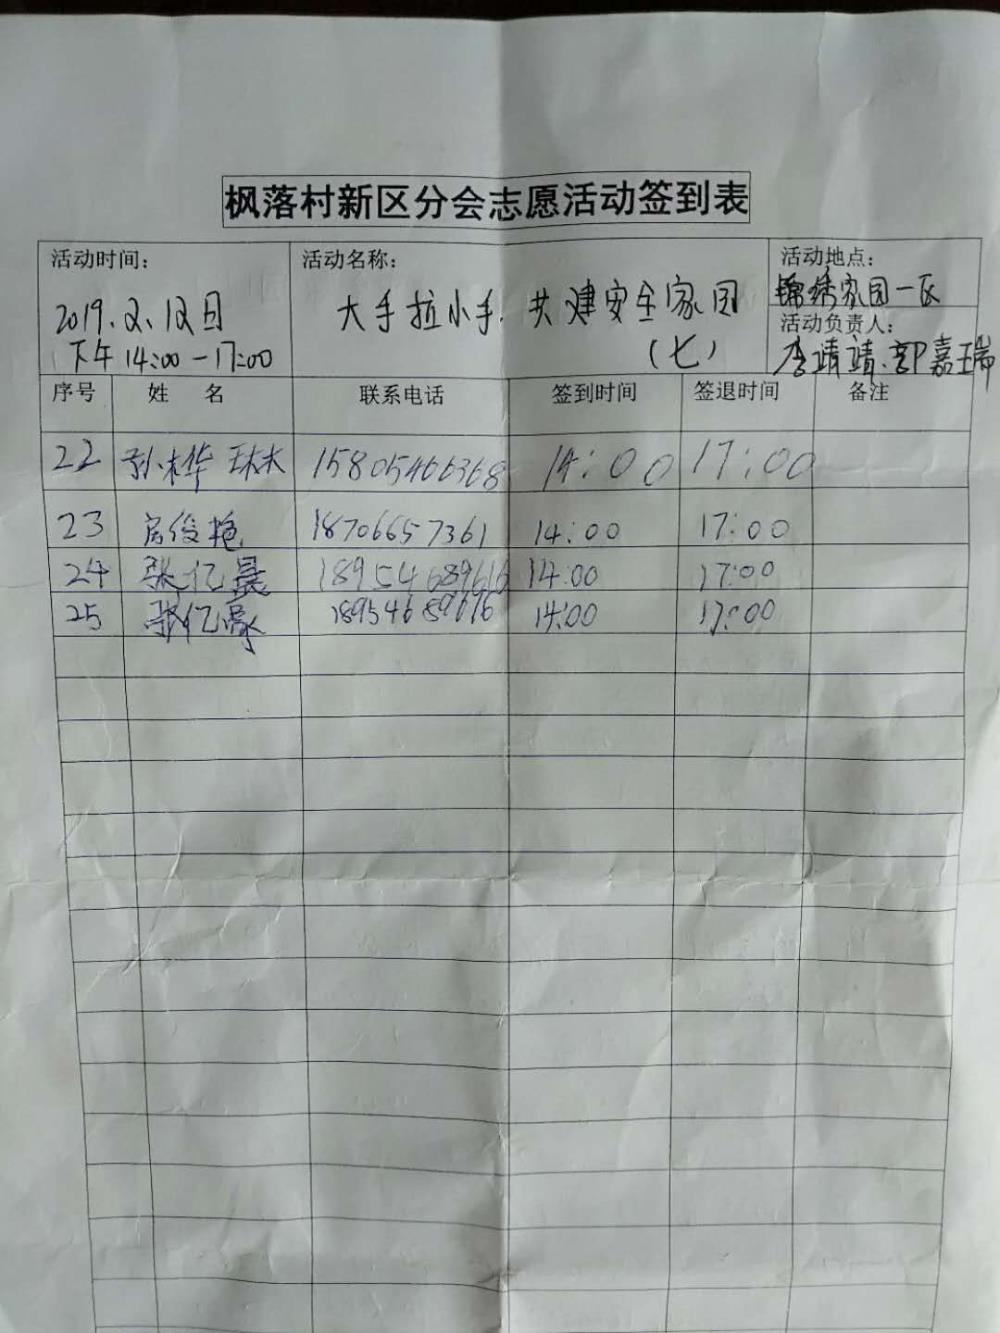 枫落村新区分会志愿活动签到表
活动时间：
2019.2.12日
下午14:00-17:00
活动名称：
大手拉小手.共建安全家园
（七）
活动地点：
锦绣家园一区
活动负责人：
李靖靖.郭嘉瑞
序号 姓 名 联系电话 签到时间 签退时间 备注
22 15805466368 14:00 17:00
23 房俊艳 18706657361 14:00 17:00
24 张亿晨 18954689616 14:00 17:00
25 张亿豪 18954689616 14:00 17:00